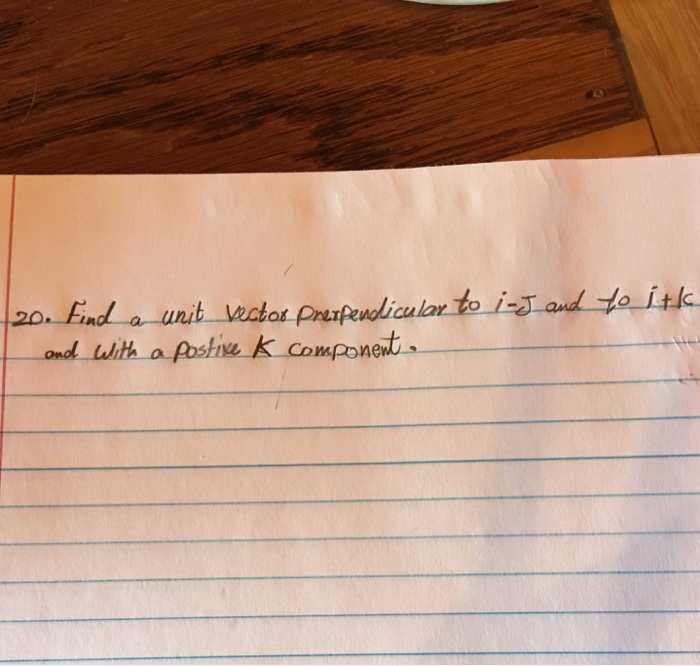 20. Find a unit vector prerpendicular to i-J and to i+k
and with a postive K component.